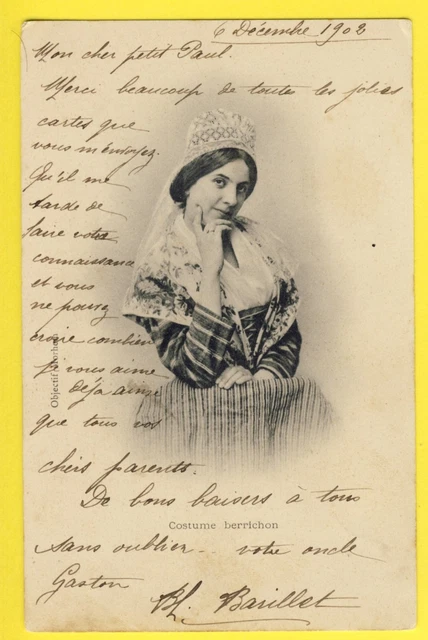 6 Décembre 1902
Mon cher petit Paul.
Merci beaucoup de toutes les jolies
cartes que
vous m'envoyez.
Qu'il me
tarde de
faire votre
connaissance
et vous
ne pouvez
croire combien
je vous aime
déjà ainsi
que tous vos
chers parents.
De bons baisers à tous
Costume berrichon
sans oublier -- votre oncle
Gaston
Bl. Barillet
Objectif